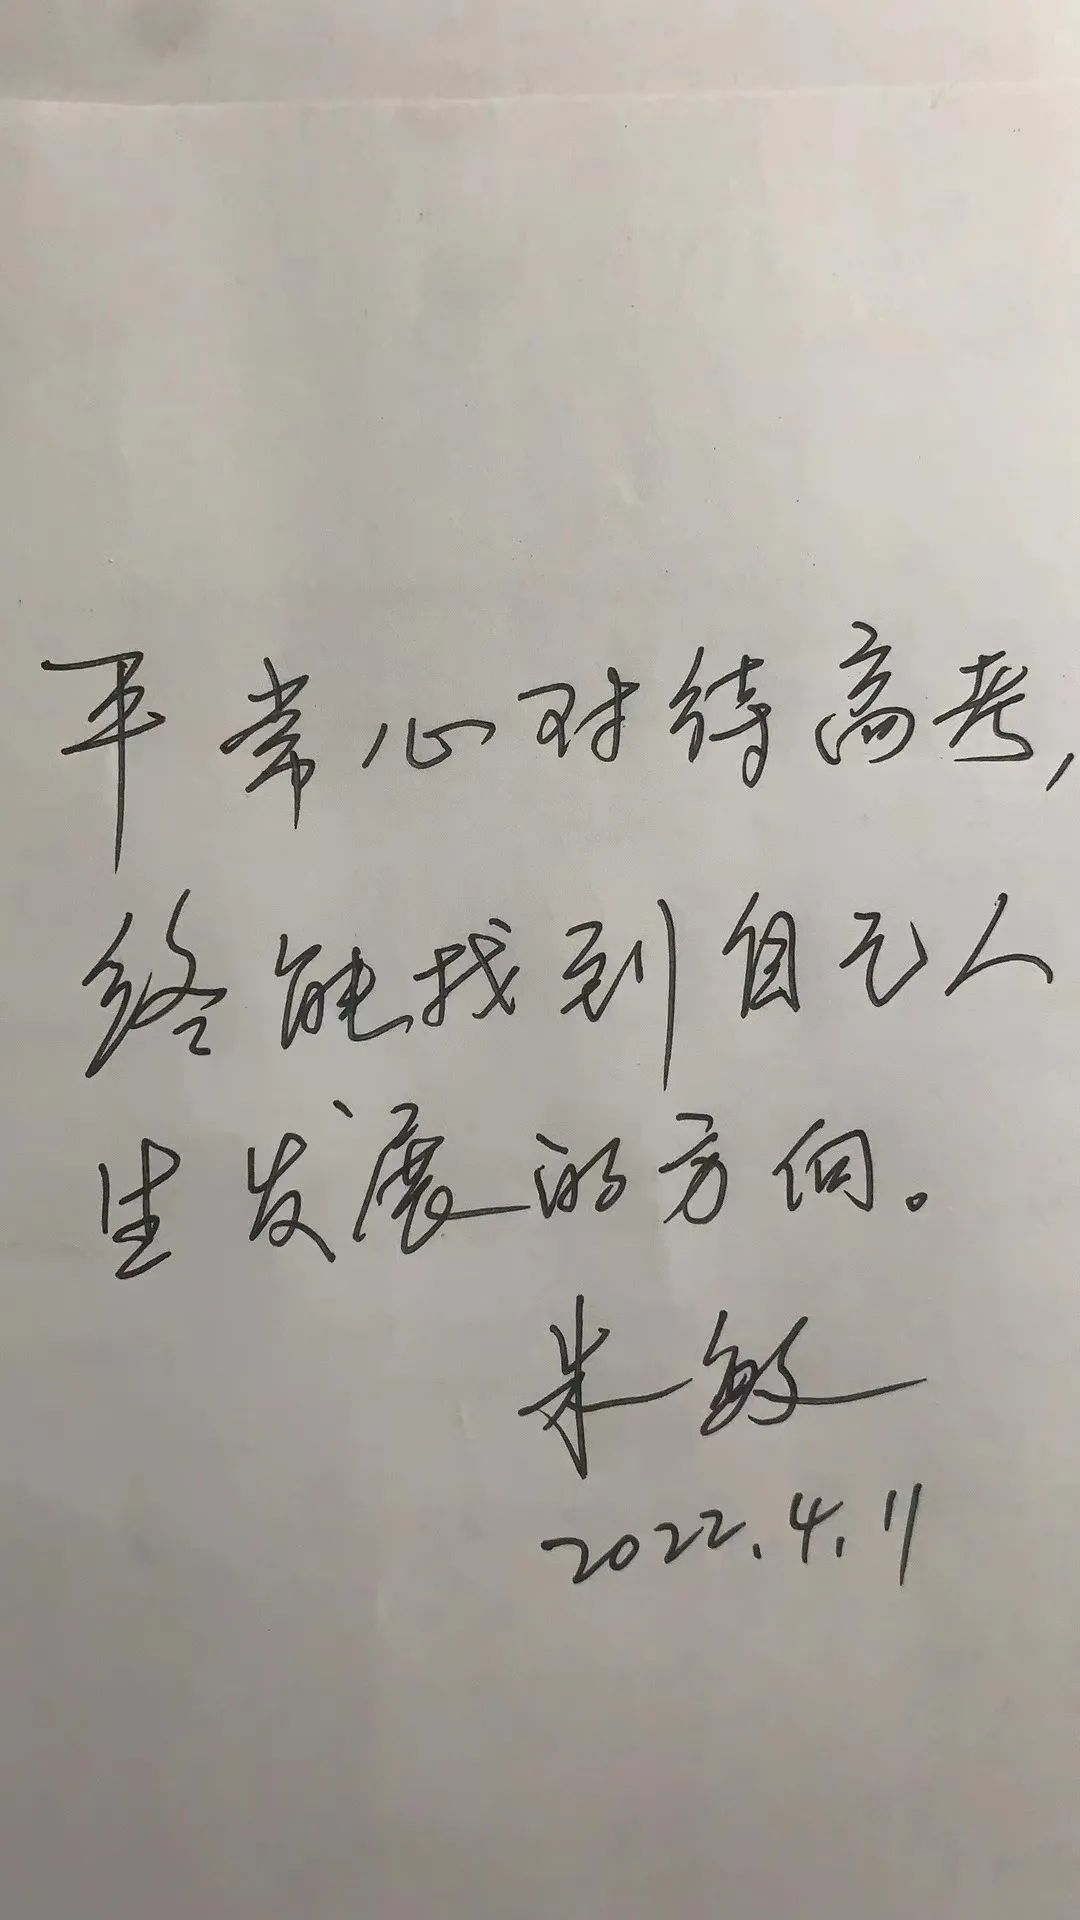 平常心对待高考,
终能找到自己人
生发展的方向。
朱敏
2022.4.11